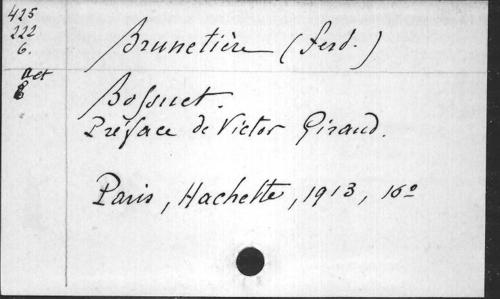 425
222
6.
act
Brunetière (Ferd.)
Bossuet.
Préface de Victor Giraud.
Paris, Hachette, 1913, 16º